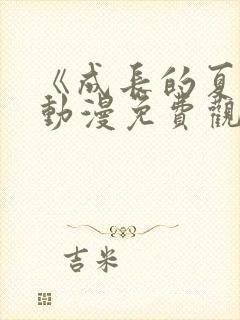 《成長的夏
動漫免費觀
吉米